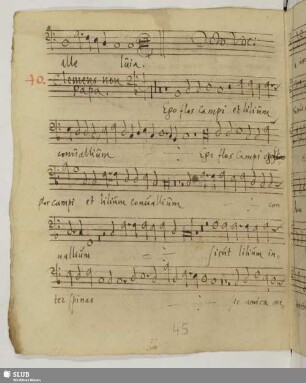 alle luia.
Octo voc:
70.
Clemens non
papa.
Ego flos campi et lilium
convallium Ego flos campi ego
flos campi et lilium convallium con
vallium sicut lilium in-
ter spinas sic amica me
45
SLUB